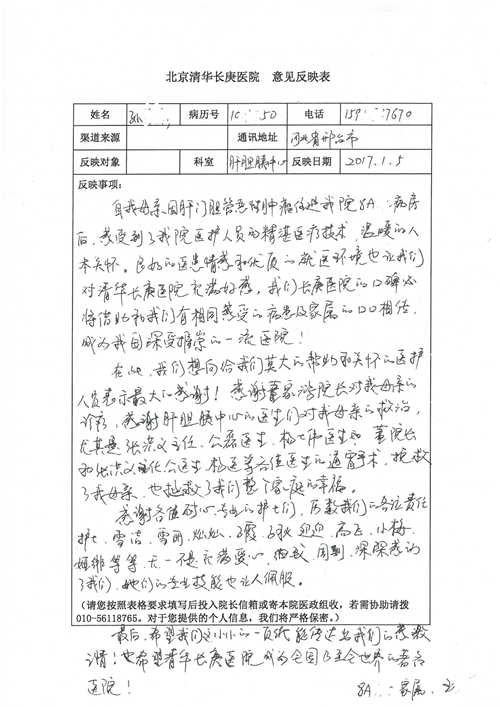 北京清华长庚医院 意见反映表
姓名 病历号 50 电话 159 7670
渠道来源 通讯地址 河北省邢台市
反映对象 科室 肝胆胰中心 反映日期 2017.1.5
反映事项:
自我母亲因肝门胆管恶性肿瘤住进我院8A 病房
后,感受到了我院医护人员的精湛医疗技术,温暖的人
本关怀。良好的医患情感和优质的就医环境也让我们
对清华长庚医院充满好感,我们长庚医院的口碑必
将借助和我们有相同感受的病患及家属的口口相传,
成为我国深受推崇的一流医院!
在此,我们想向给我们莫大的帮助和关怀的医护
人员表示最大的感谢!感谢董家鸿院长对我母亲的
诊疗,感谢肝胆胰中心的医生们对我母亲的救治,
尤其是张 主任、 医生、 医生和董院长
和 主任 医生、 等各位医生的通宵手术,挽救
了我母亲,也拯救了我们整个家庭的幸福。
感谢各值 护士们, 我们的各位责任
护士,雪洁、雪丽、灿灿、 迎迎、高飞、小梅、
等等,无一不是充满爱心、 周到,深深感动
了我们,她们的专业技能也让人佩服。
(请您按照表格要求填写后投入院长信箱或寄本院医政组收,若需协助请拨
010-56118765。对于您提供的个人信息,我们将严格保密。)
最后,希望我们这小小的一页纸能传达出我们的感激
之情!也希望清华长庚医院成为全国乃至全世界的著名
医院!
8A 家属